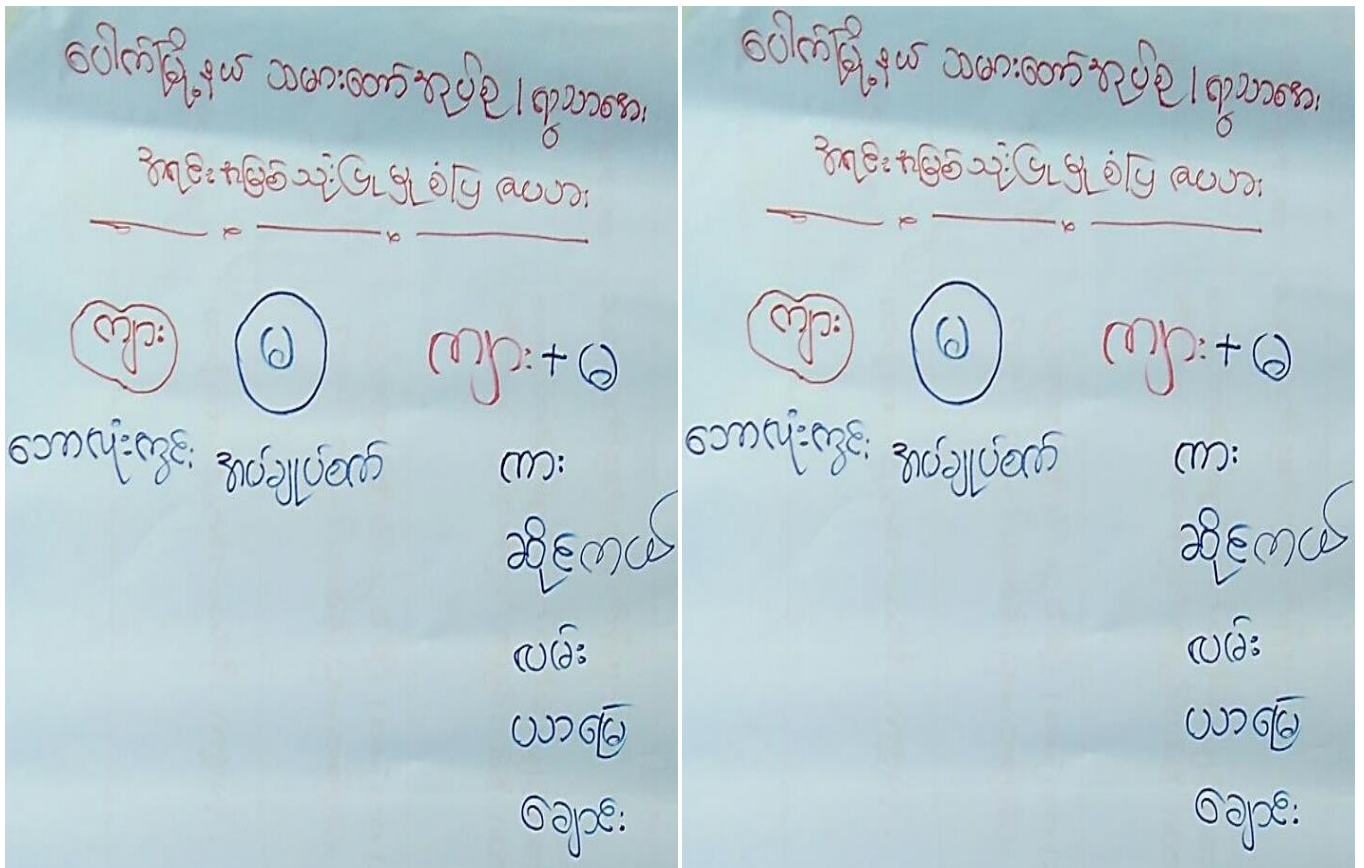 ပေါက်မြို့နယ် သမားတော်အုပ်စု၊ ရွာသာအေး
အရင်းအမြစ်သုံးပြုမှုစံပြ ဇယား
ကျား မ ကျား + မ
ဘောလုံးကွင်း အပ်ချုပ်စက် ကား
ဆိုင်ကယ်
လမ်း
ယာမြေ
ချောင်း
ပေါက်မြို့နယ် သမားတော်အုပ်စု၊ ရွာသာအေး
အရင်းအမြစ်သုံးပြုမှုစံပြ ဇယား
ကျား မ ကျား + မ
ဘောလုံးကွင်း အပ်ချုပ်စက် ကား
ဆိုင်ကယ်
လမ်း
ယာမြေ
ချောင်း